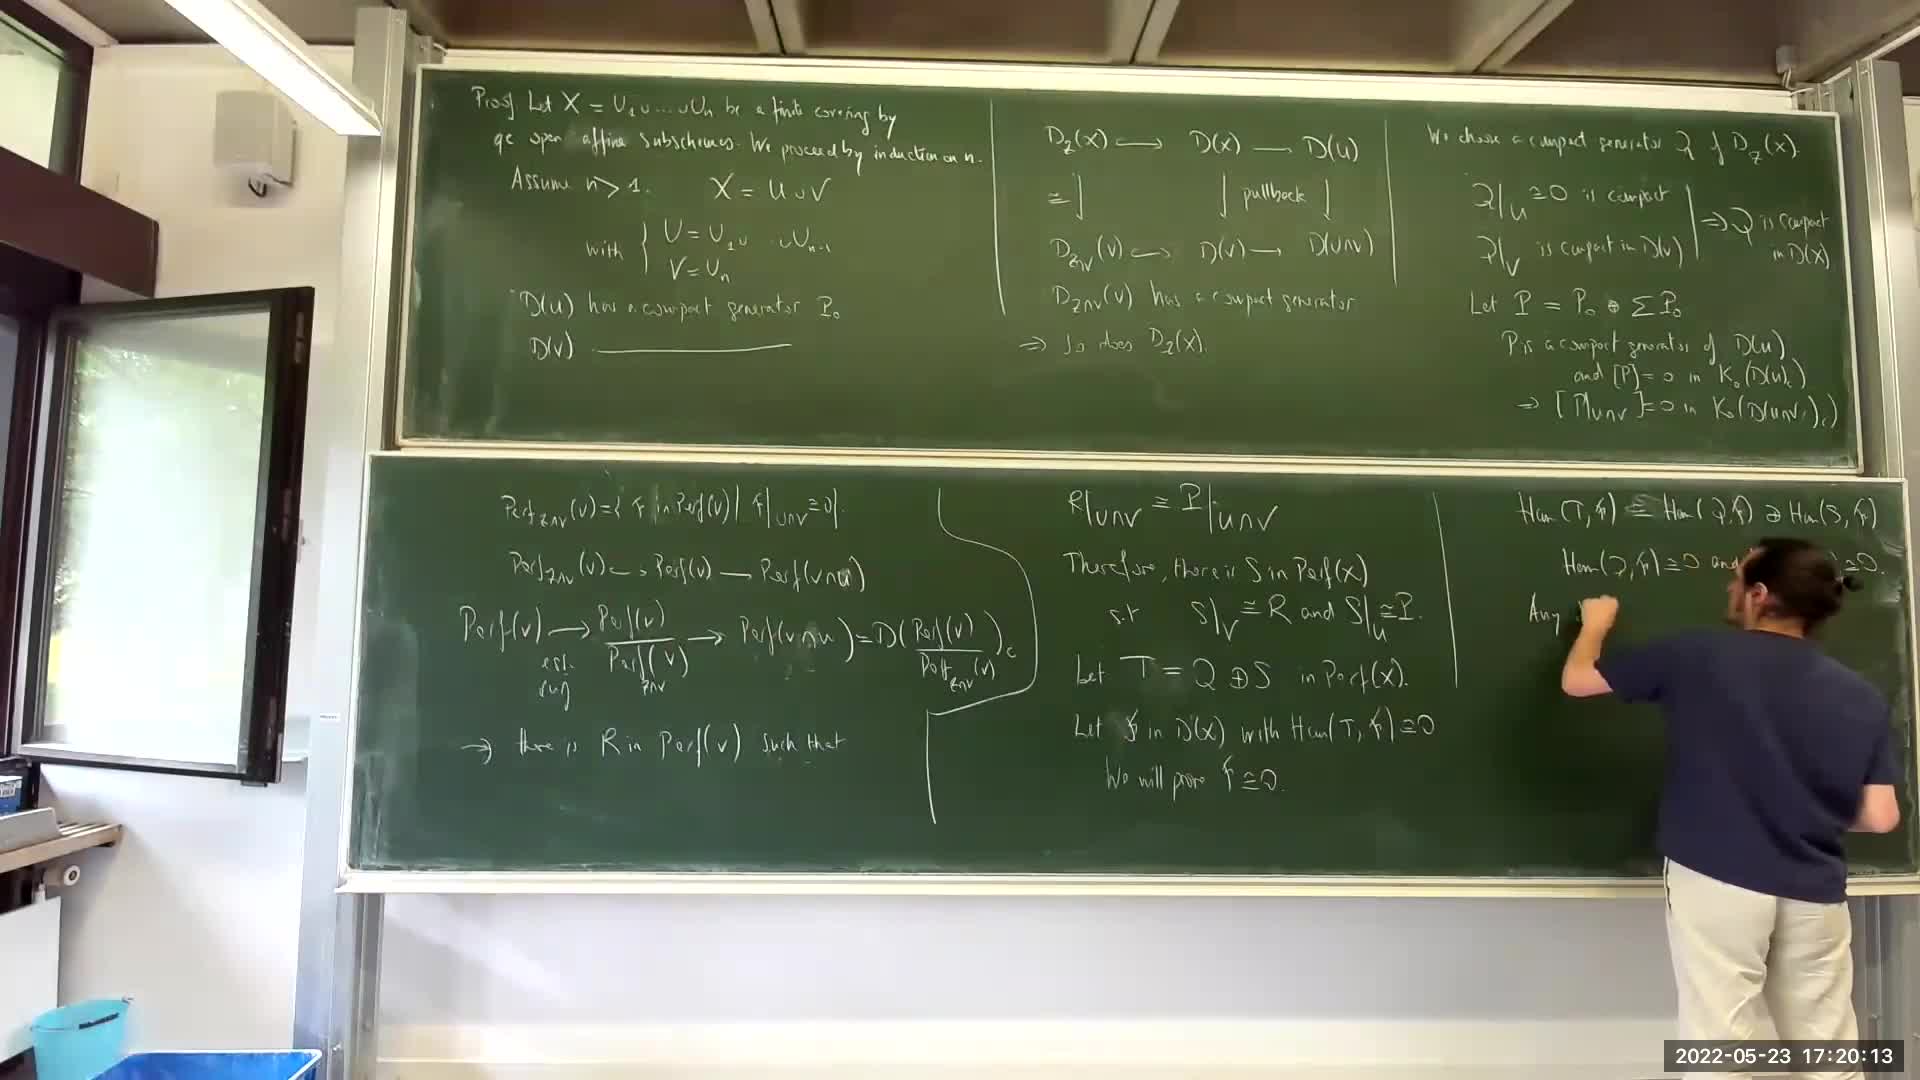 Proof. Let X = U₁ ∪ ... ∪ Uₙ be a finite covering by
qc open affine subschemes. We proceed by induction on n.
Assume n > 1. X = U ∪ V
with { U = U₁ ∪ ... ∪ Uₙ₋₁
V = Uₙ
D(U) has a compact generator P₀
D(V) ————
D_Z(X) ↪ D(X) — D(U)
≅↓ ↓ pullback ↓
D_{Z∩V}(V) ↪ D(V) → D(U∩V)
D_{Z∩V}(V) has a compact generator
⇒ so does D_Z(X).
We choose a compact generator Q of D_Z(X).
Q|_U ≅ 0 is compact
Q|_V is compact in D(V)
⇒ Q is compact
in D(X)
Let P = P₀ ⊕ ΣP₀
P is a compact generator of D(U)
and [P] = 0 in K₀(D(U)_c)
⇒ [P|_{U∩V}] = 0 in K₀(D(U∩V)_c)
Perf_{Z∩V}(V) = { F in Perf(V) | F|_{U∩V} ≅ 0 }.
Perf_{Z∩V}(V) ↪ Perf(V) — Perf(V∩U)
Perf(V) → Perf(V) / Perf_{Z∩V}(V) → Perf(V∩U) = D(Perf(V) / Perf_{Z∩V}(V))_c
ess.
surj
→ there is R in Perf(V) such that
R|_{U∩V} ≅ P|_{U∩V}
Therefore, there is S in Perf(X)
s.t S|_V ≅ R and S|_U ≅ P.
Let T = Q ⊕ S in Perf(X).
Let F in D(X) with Hom(T, F) ≅ 0
We will prove F ≅ 0.
Hom(T, F) ≅ Hom(Q, F) ⊕ Hom(S, F)
Hom(Q, F) ≅ 0 and ≅ 0.
Any
2022-05-23 17:20:13